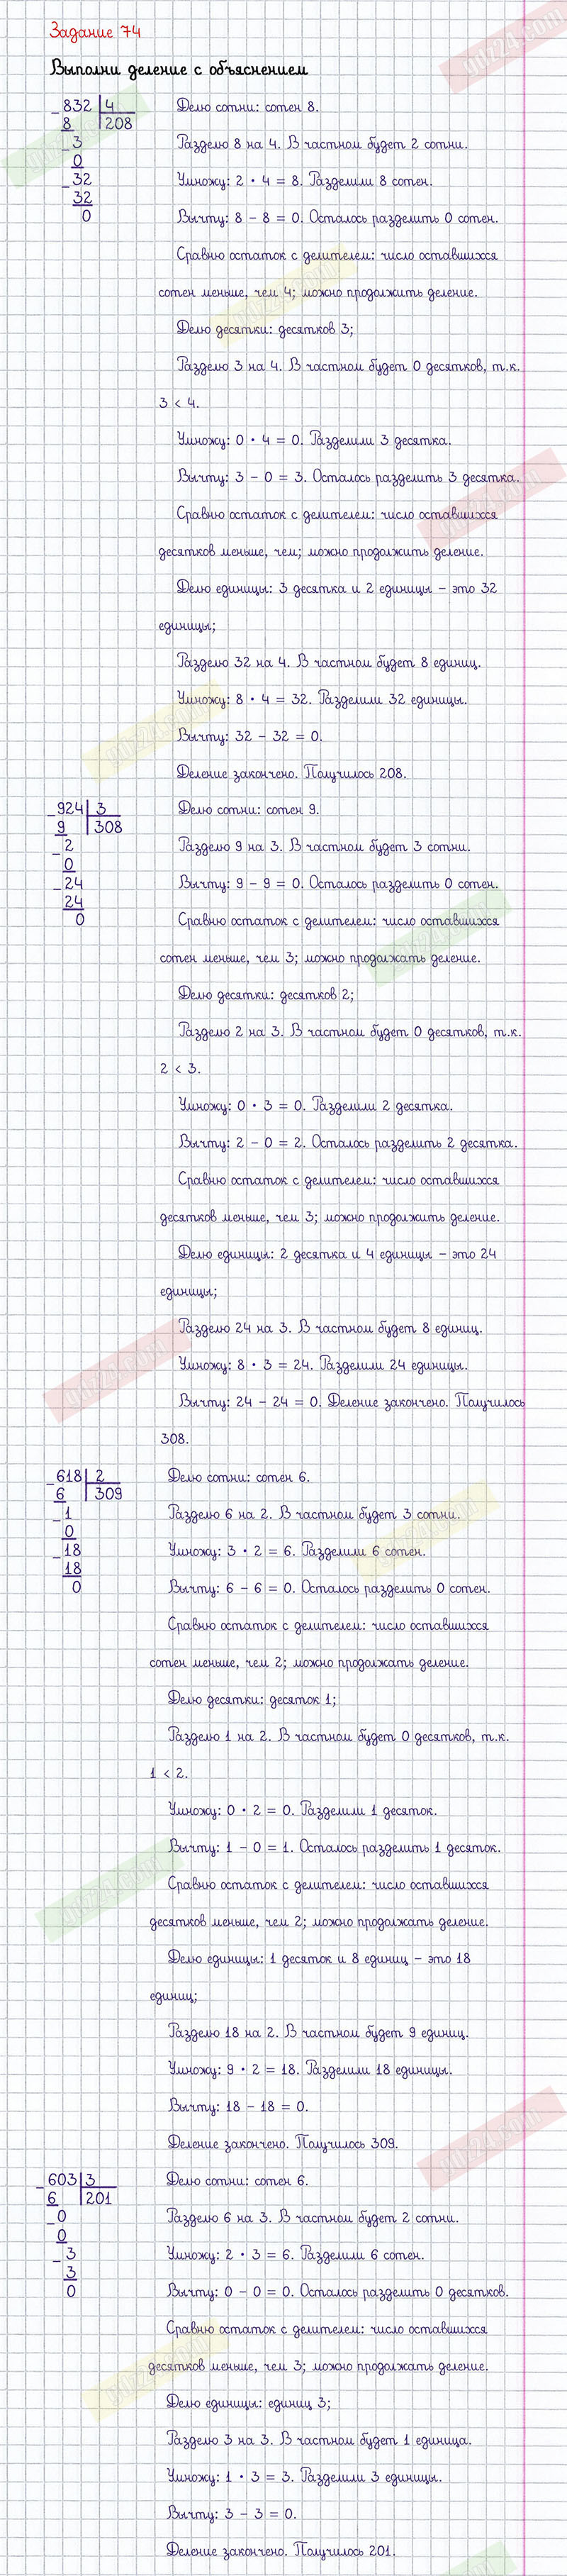 Задание 74
Выполни деление с объяснением
832 4
8 208
3
0
32
32
0
Делю сотни: сотен 8.
Разделю 8 на 4. В частном будет 2 сотни.
Умножу: 2 · 4 = 8. Разделили 8 сотен.
Вычту: 8 – 8 = 0. Осталось разделить 0 сотен.
Сравню остаток с делителем: число оставшихся
сотен меньше, чем 4; можно продолжить деление.
Делю десятки: десятков 3;
Разделю 3 на 4. В частном будет 0 десятков, т.к.
3 < 4.
Умножу: 0 · 4 = 0. Разделили 3 десятка.
Вычту: 3 – 0 = 3. Осталось разделить 3 десятка.
Сравню остаток с делителем: число оставшихся
десятков меньше, чем; можно продолжить деление.
Делю единицы: 3 десятка и 2 единицы – это 32
единицы;
Разделю 32 на 4. В частном будет 8 единиц.
Умножу: 8 · 4 = 32. Разделили 32 единицы.
Вычту: 32 – 32 = 0.
Деление закончено. Получилось 208.
924 3
9 308
2
0
24
24
0
Делю сотни: сотен 9.
Разделю 9 на 3. В частном будет 3 сотни.
Вычту: 9 – 9 = 0. Осталось разделить 0 сотен.
Сравню остаток с делителем: число оставшихся
сотен меньше, чем 3; можно продолжать деление.
Делю десятки: десятков 2;
Разделю 2 на 3. В частном будет 0 десятков, т.к.
2 < 3.
Умножу: 0 · 3 = 0. Разделили 2 десятка.
Вычту: 2 – 0 = 2. Осталось разделить 2 десятка.
Сравню остаток с делителем: число оставшихся
десятков меньше, чем 3; можно продолжить деление.
Делю единицы: 2 десятка и 4 единицы – это 24
единицы;
Разделю 24 на 3. В частном будет 8 единиц.
Умножу: 8 · 3 = 24. Разделили 24 единицы.
Вычту: 24 – 24 = 0. Деление закончено. Получилось
308.
618 2
6 309
1
0
18
18
0
Делю сотни: сотен 6.
Разделю 6 на 2. В частном будет 3 сотни.
Умножу: 3 · 2 = 6. Разделили 6 сотен.
Вычту: 6 – 6 = 0. Осталось разделить 0 сотен.
Сравню остаток с делителем: число оставшихся
сотен меньше, чем 2; можно продолжать деление.
Делю десятки: десяток 1;
Разделю 1 на 2. В частном будет 0 десятков, т.к.
1 < 2.
Умножу: 0 · 2 = 0. Разделили 1 десяток.
Вычту: 1 – 0 = 1. Осталось разделить 1 десяток.
Сравню остаток с делителем: число оставшихся
десятков меньше, чем 2; можно продолжать деление.
Делю единицы: 1 десяток и 8 единиц – это 18
единиц;
Разделю 18 на 2. В частном будет 9 единиц.
Умножу: 9 · 2 = 18. Разделили 18 единицы.
Вычту: 18 – 18 = 0.
Деление закончено. Получилось 309.
603 3
6 201
0
0
3
3
0
Делю сотни: сотен 6.
Разделю 6 на 3. В частном будет 2 сотни.
Умножу: 2 · 3 = 6. Разделили 6 сотен.
Вычту: 0 – 0 = 0. Осталось разделить 0 десятков.
Сравню остаток с делителем: число оставшихся
десятков меньше, чем 3; можно продолжать деление.
Делю единицы: единиц 3;
Разделю 3 на 3. В частном будет 1 единица.
Умножу: 1 · 3 = 3. Разделили 3 единицы.
Вычту: 3 – 3 = 0.
Деление закончено. Получилось 201.